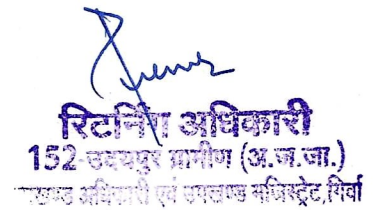 रिटर्निंग अधिकारी
152-उदयपुर ग्रामीण (अ.ज.जा.)
अधिकारी एवं उपखण्ड मजिस्ट्रेट,गिर्वा